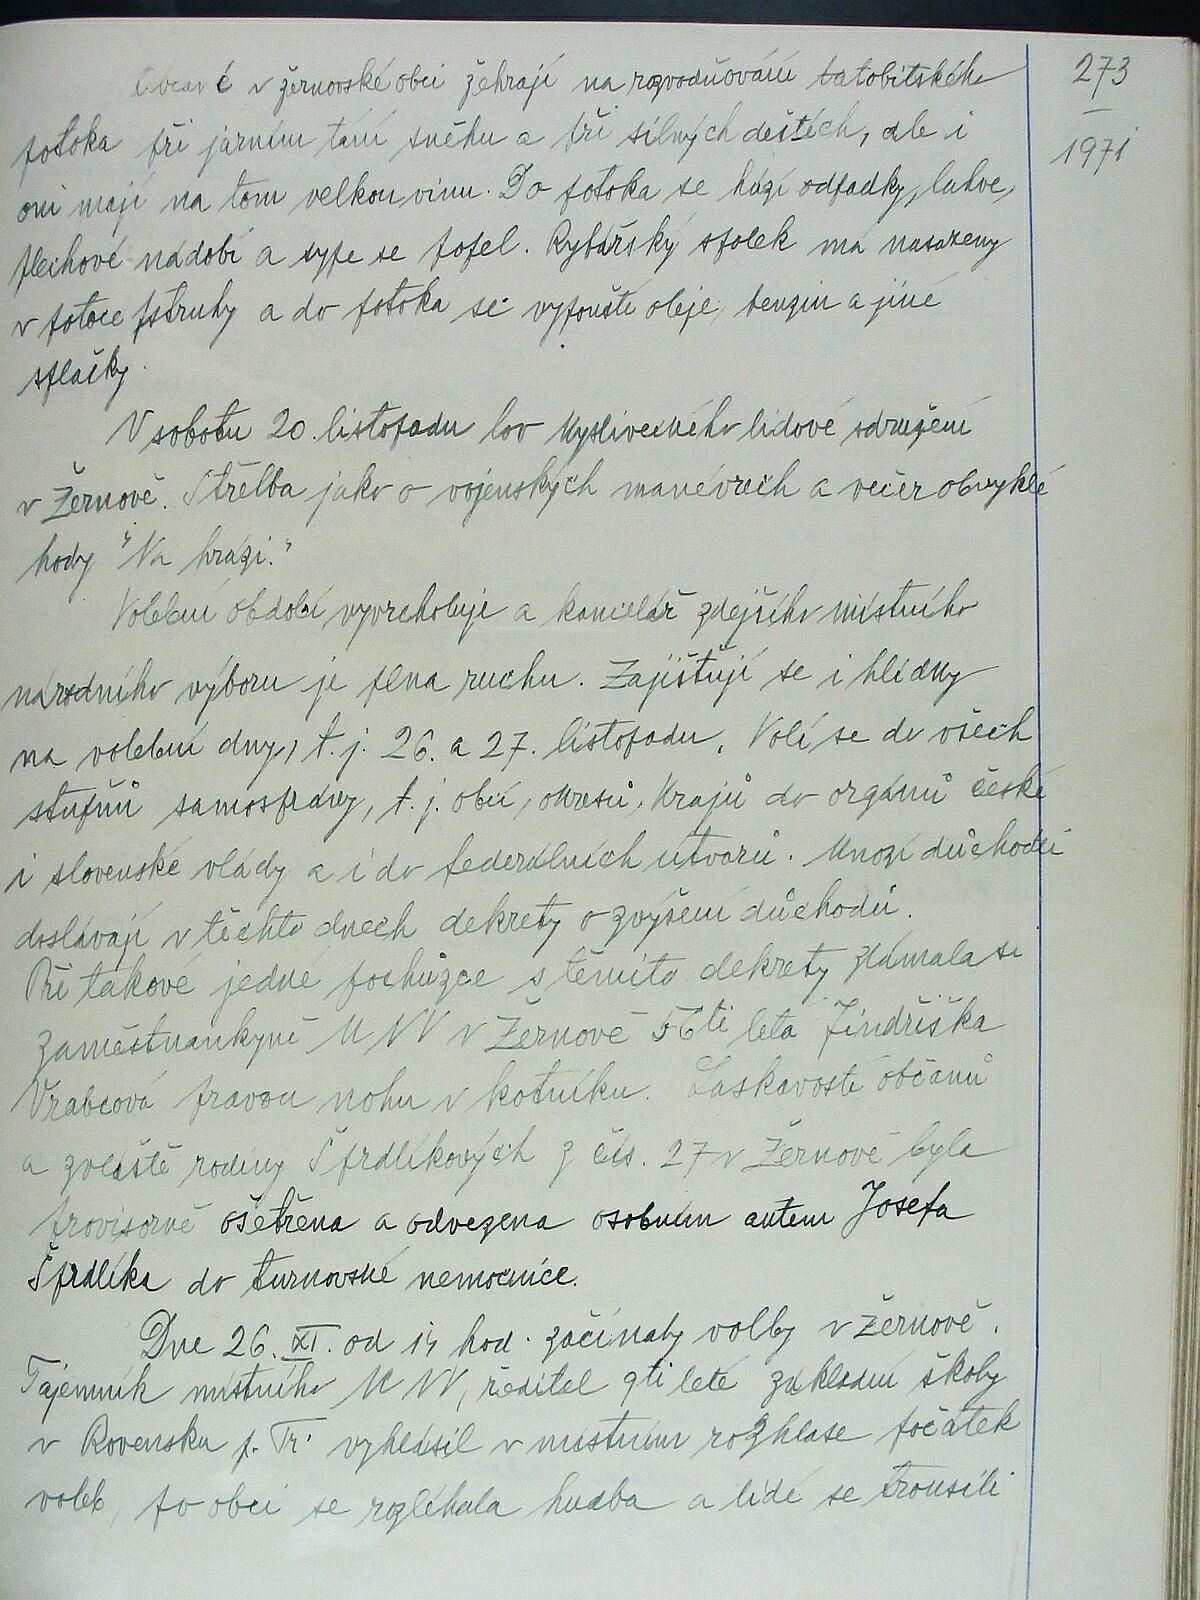 Občané v žernovské obci žehrají na rozvodňování tatobitského
potoka při jarním tání sněhu a při silných deštích, ale i
oni mají na tom velkou vinu. Do potoka se hází odpadky, lahve,
plechové nádobí a sype se popel. Rybářský spolek má nasazeny
v potoce pstruhy a do potoka se vypouští oleje, benzin a jiné
splašky.
V sobotu 20. listopadu lov Mysliveckého lidové sdružení
v Žernově. Střelba jako o vojenských manévrech a večer obvyklé
hody "Na hrázi."
Volební období vyvrcholuje a kancelář zdejšího místního
národního výboru je plna ruchu. Zajišťují se i hlídky
na volební dny, t. j. 26. a 27. listopadu. Volí se do všech
stupňů samosprávy, t. j. obcí, okresů, krajů do orgánů české
i slovenské vlády a i do federálních útvarů. Mnozí důchodci
dostávají v těchto dnech dekrety o zvýšení důchodů.
Při takové jedné pochůzce s těmito dekrety zlámala si
zaměstnankyně MNV v Žernově 56ti letá Jindřiška
Vrabcová pravou nohu v kotníku. Laskavostí občanů
a zvláště rodiny Šfrdlíkových z čís. 27 v Žernově byla
provisorně ošetřena a odvezena osobním autem Josefa
Šfrdlíka do turnovské nemocnice.
Dne 26. XI. od 14 hod. začínaly volby v Žernově.
Tajemník místního MNV, ředitel 9ti leté základní školy
v Rovensku p. Tr. vyhlásil v místním rozhlase počátek
voleb, po obci se rozléhala hudba a lidé se trousili
273
1971